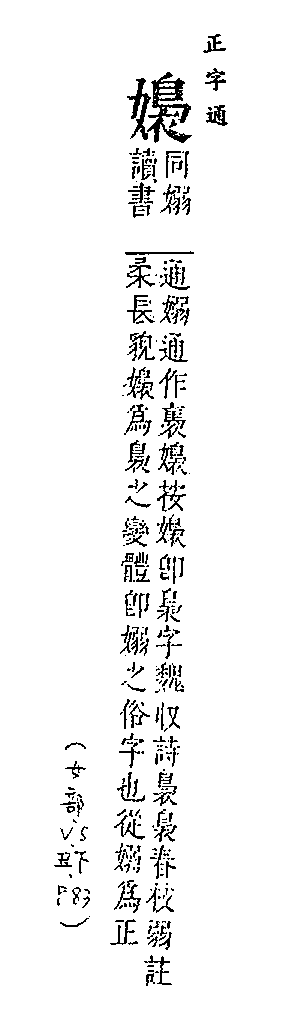 正字通
嬝
同嫋
讀書
通嫋通作裊嬝按嬝卽裊字魏收詩裊裊春枝弱註
柔長貌嬝為裊之變體卽嫋之俗字也從嫋為正
(女部、V.5
丑下、
P.83)